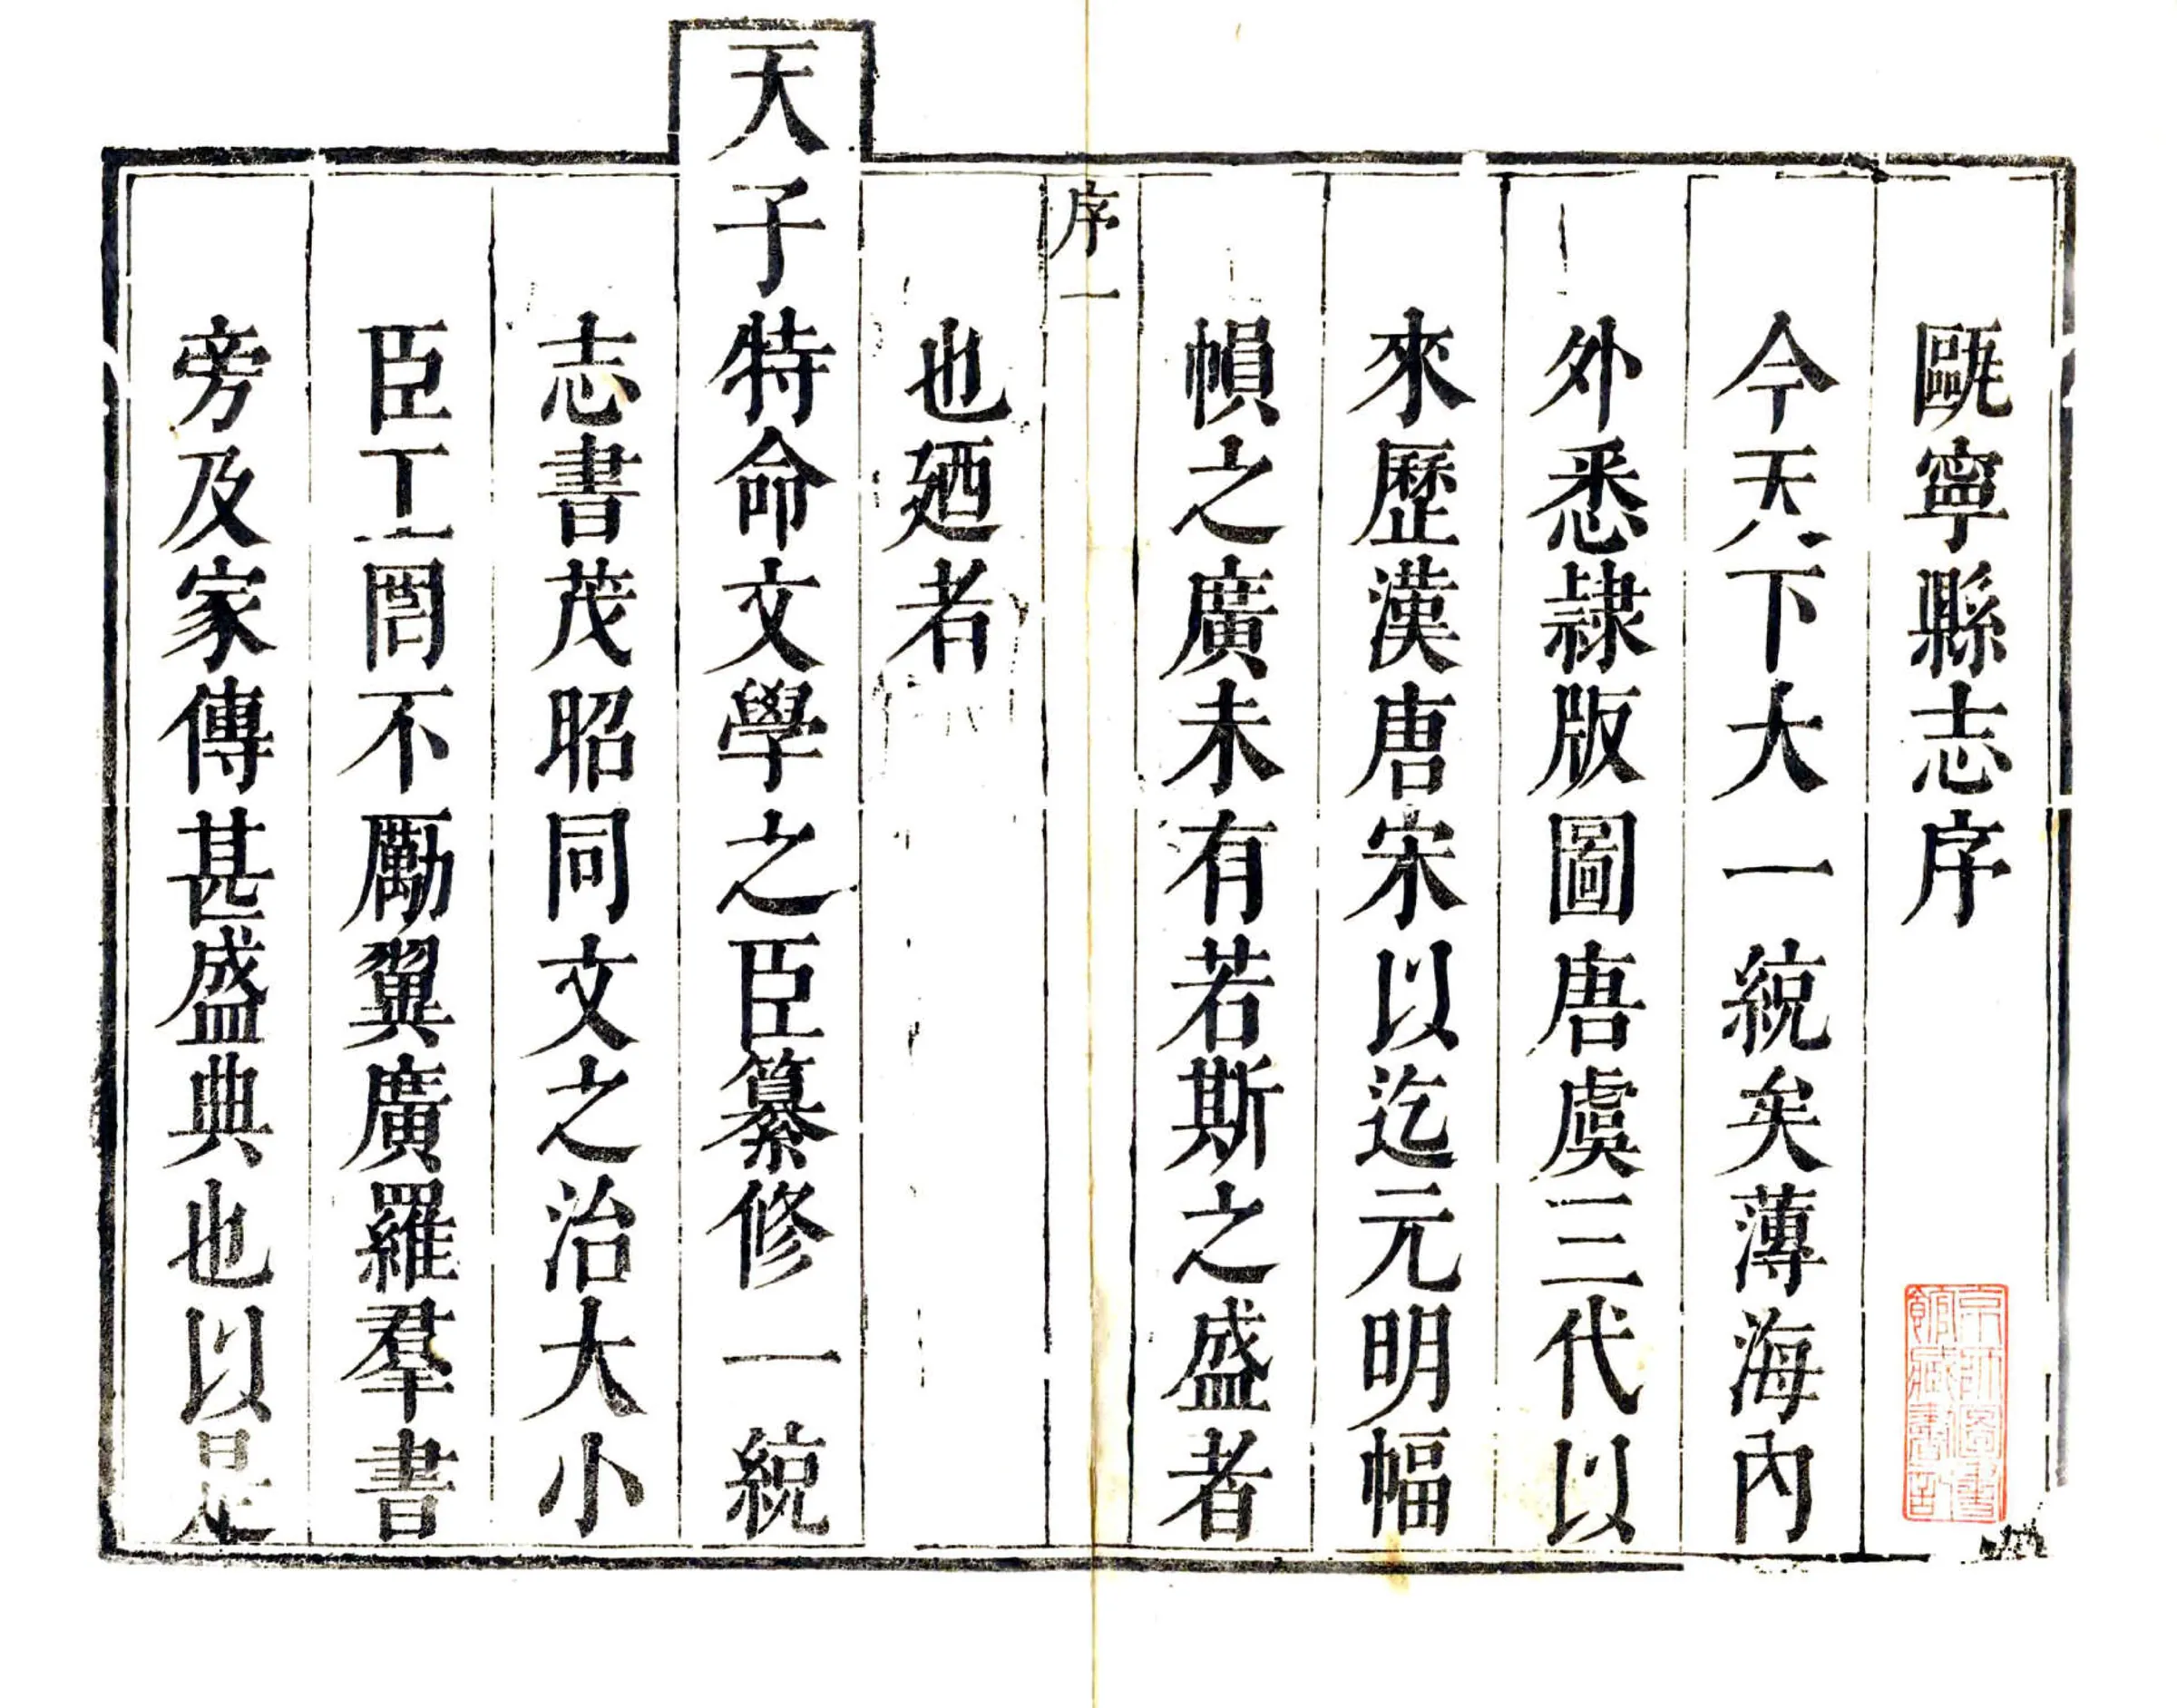 甌寧縣志序
今天下大一統矣薄海內
外悉隷版圖唐虞三代以
來歷漢唐宋以迄元明幅
幀之廣未有若斯之盛者
序一
也廼者
天子特命文學之臣纂修一統
志書茂昭同文之治大小
臣工罔不勵翼廣羅羣書
旁及家傳甚盛典也以是
京師圖書
館藏書記